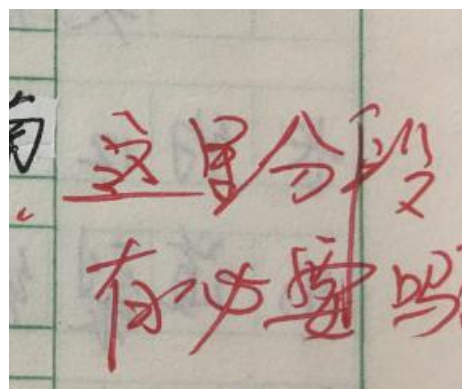 这里分段
有必要吗